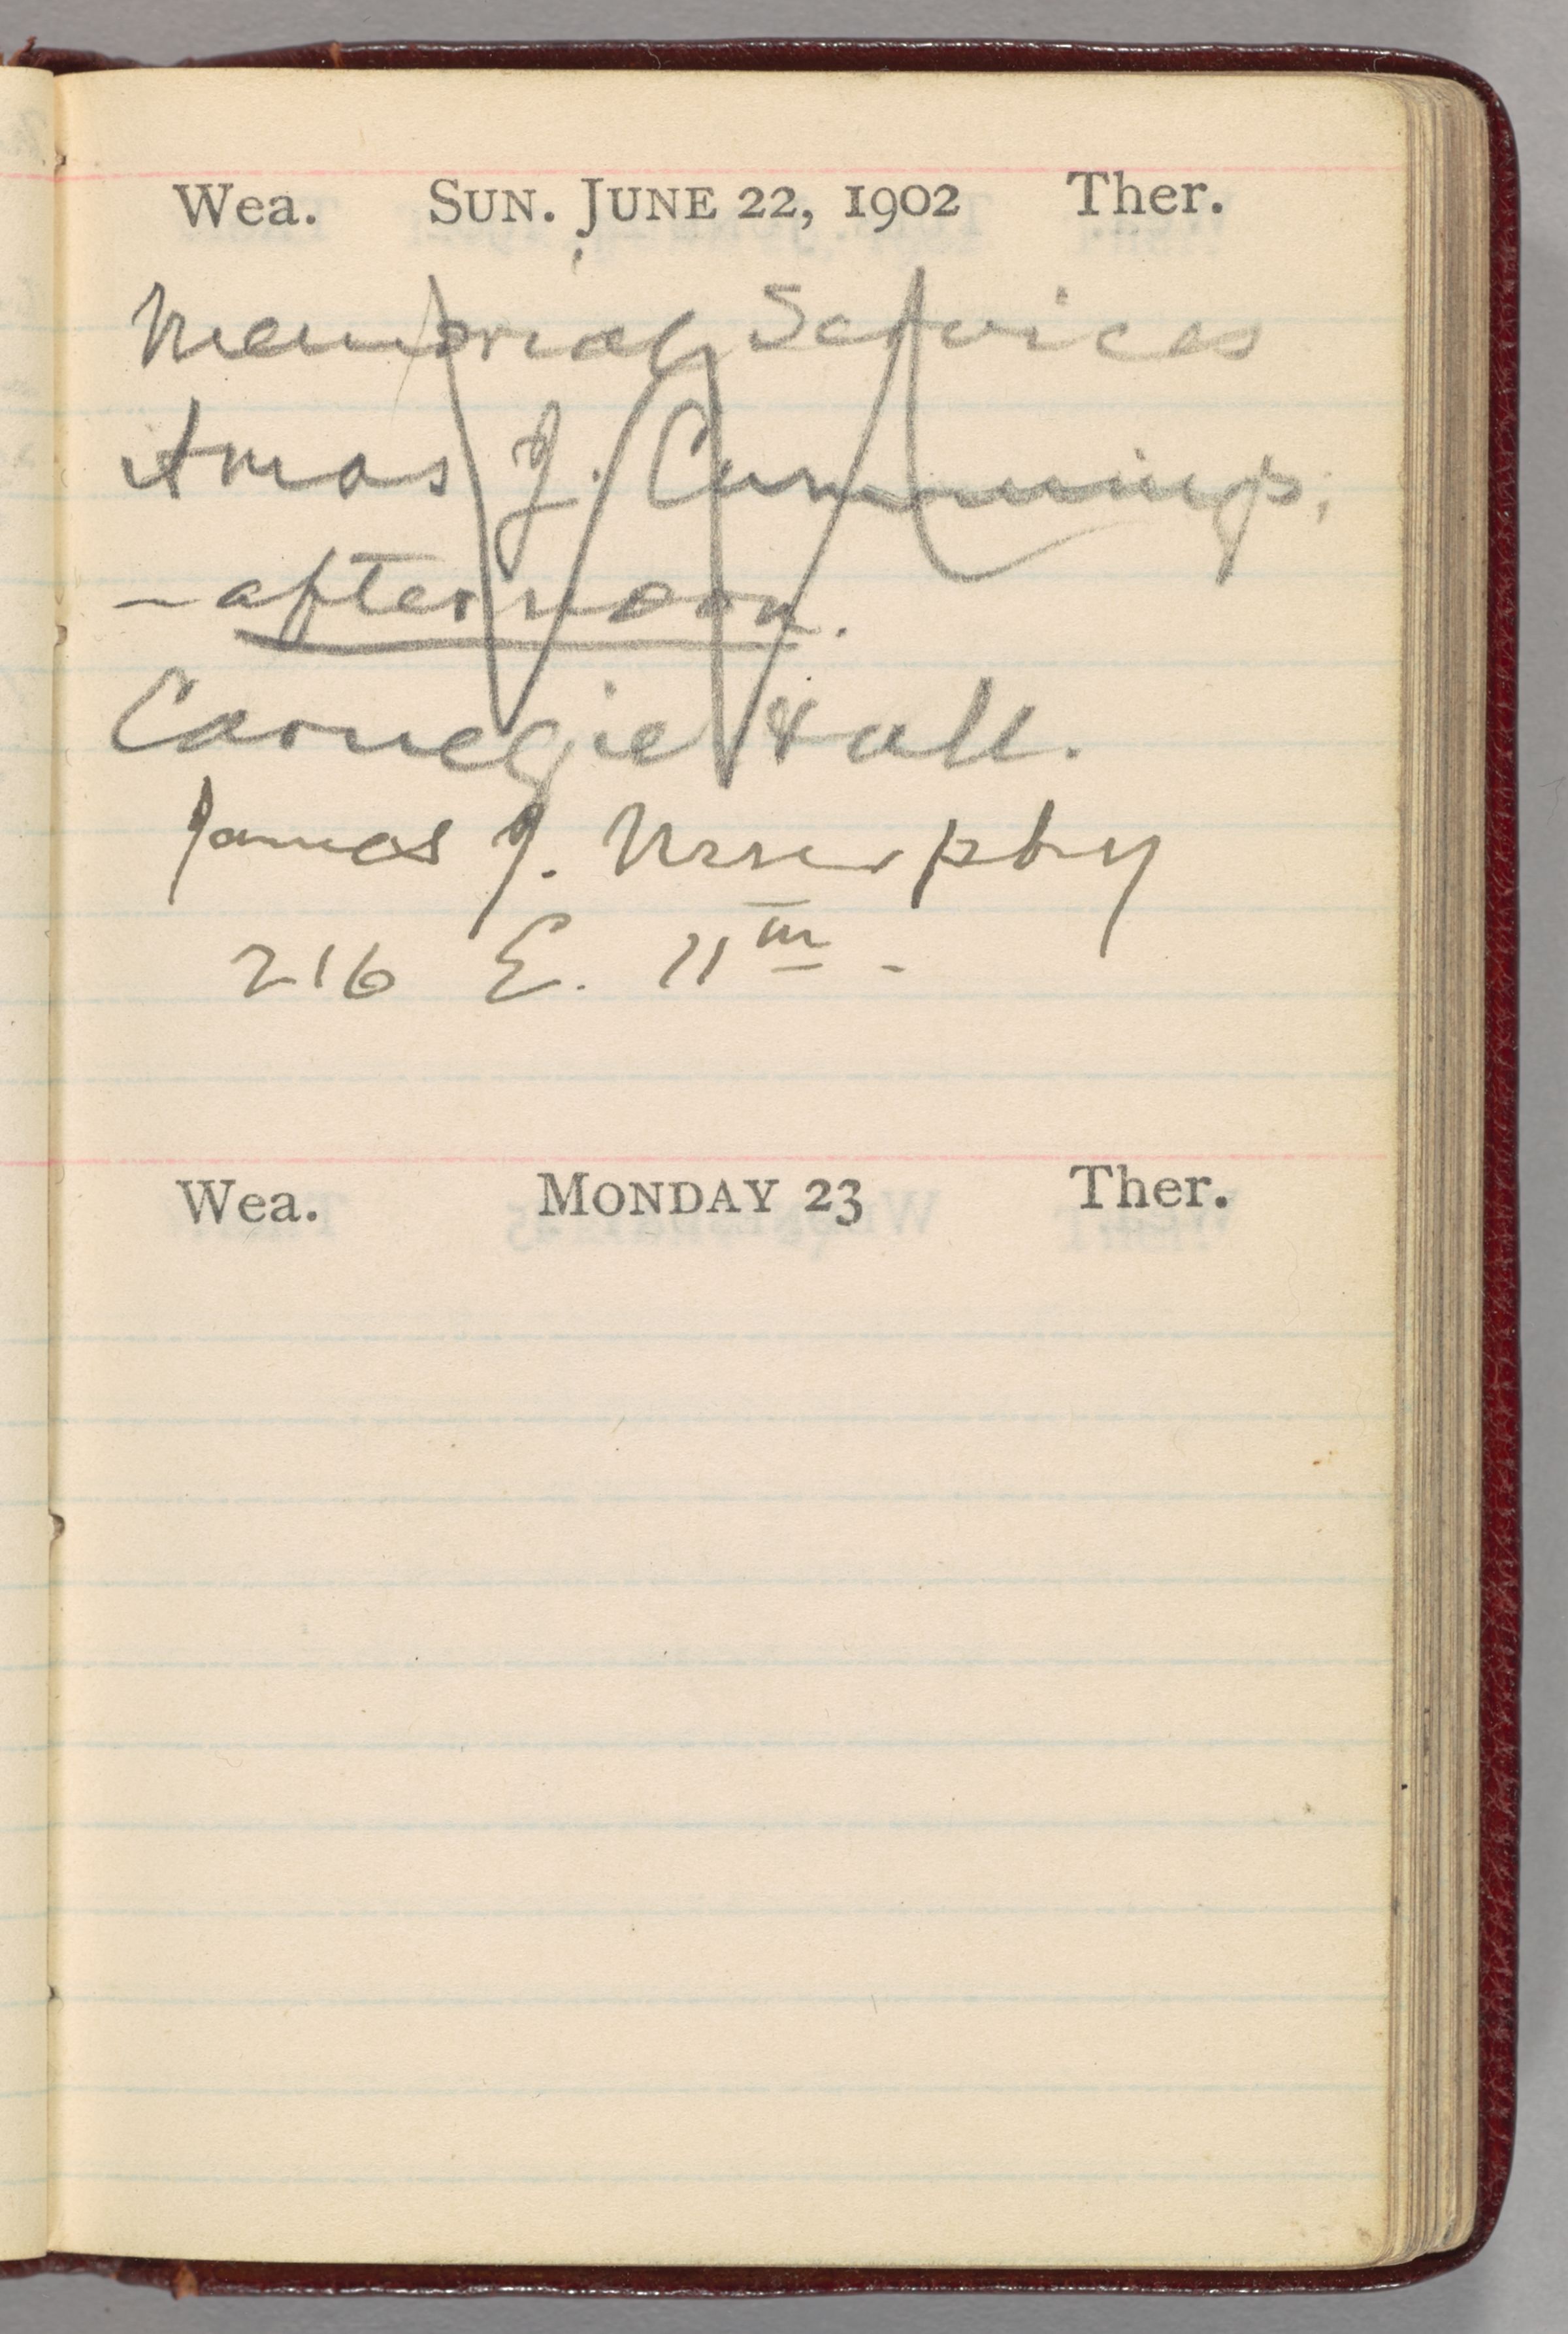 Wea. SUN. JUNE 22, 1902 Ther.
Memorial Services
Amos J. Cummings,
- afternoon.
Carnegie Hall.
James J. Murphy
216 E. 11th -
Wea. MONDAY 23 Ther.